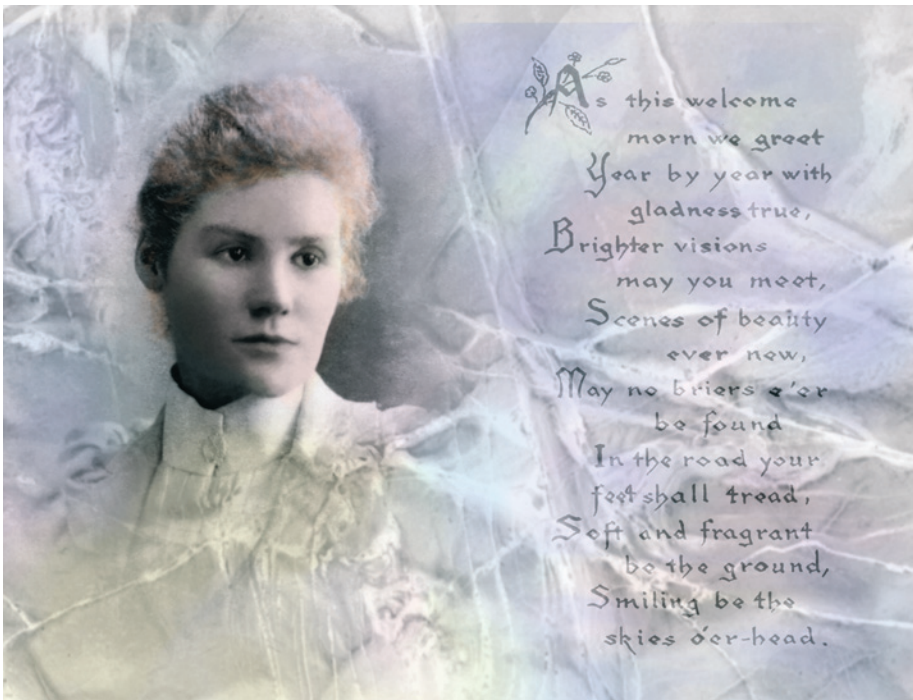 As this welcome
morn we greet
Year by year with
gladness true,
Brighter visions
may you meet,
Scenes of beauty
ever new,
May no briers e'er
be found
In the road your
feet shall tread,
Soft and fragrant
be the ground,
Smiling be the
skies o'er-head.